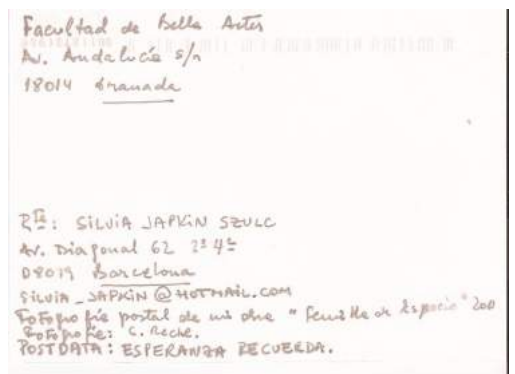 Facultad de Bella Artes
Av. Andalucía s/n
18014 Granada
Rte: SILVIA JAPKIN SZULC
Av. Diagonal 62 2º 4º
08019 Barcelona
SILVIA_JAPKIN@HOTMAIL.COM
Fotografía postal de mi obra "Semilla de Espacio" 200
Fotografía: C. Reche.
POSTDATA: ESPERANZA RECUERDA.